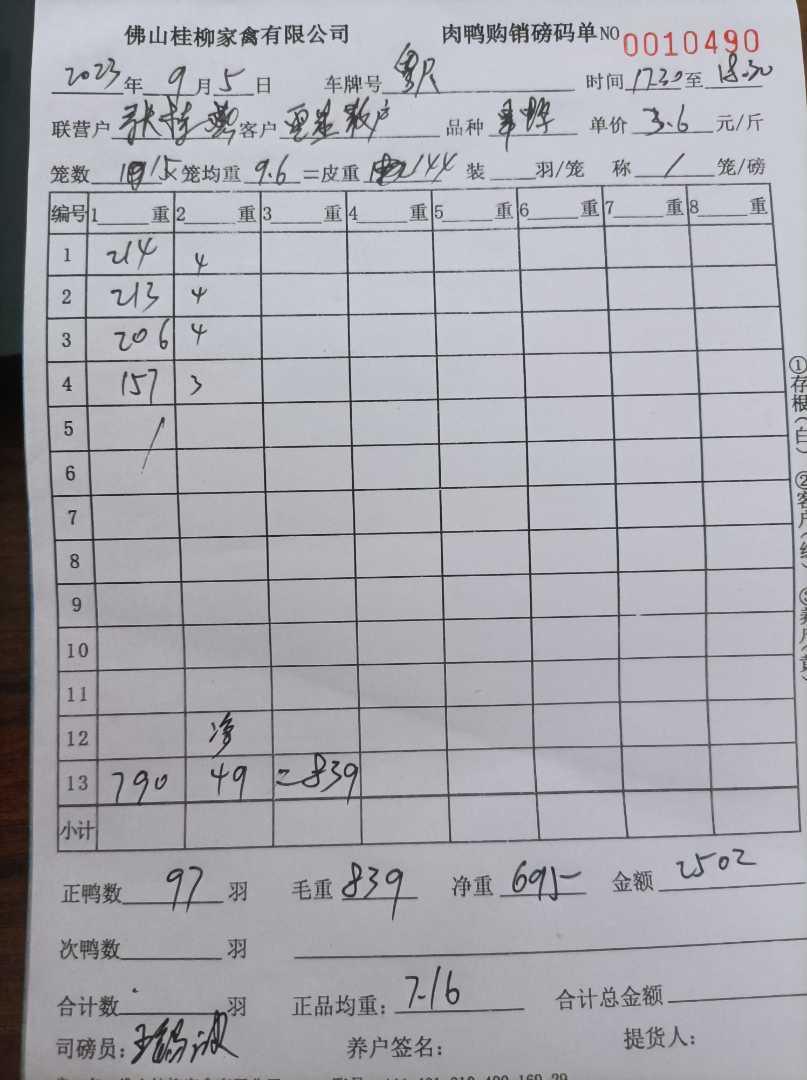 佛山桂柳家禽有限公司 肉鸭购销磅码单 NO 0010490
2023年9月5日 车牌号 时间17.30至18.30
联营户 客户 散户 品种 单价3.6元/斤
笼数15×笼均重9.6=皮重144 装 羽/笼 称/笼/磅
编号 1 重 2 重 3 重 4 重 5 重 6 重 7 重 8 重
1 214 4
2 213 4
3 206 4
4 157 3
5 /
6
7
8
9
10
11
12 净
13 790 49 =839
小计
正鸭数97羽 毛重839 净重695 金额2502
次鸭数 羽
合计数 羽 正品均重:7.16 合计总金额
司磅员: 养户签名: 提货人:
①存根(白) ②客户(红)